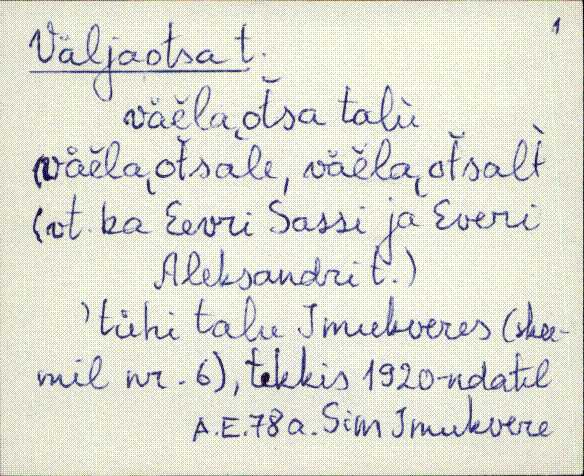 1
Väljaotsa t.
väĕla͔ot̆sa talù
väĕla͔ot̆sale, väĕla͔ot̆salt̀
(vt. ka Eevri Sassi ja Everi
Aleksandri t.)
'tühi talu Imukveres (skee-
mil nr. 6), tekkis 1920-ndatel
A.E. 78 a. Sim Imukvere